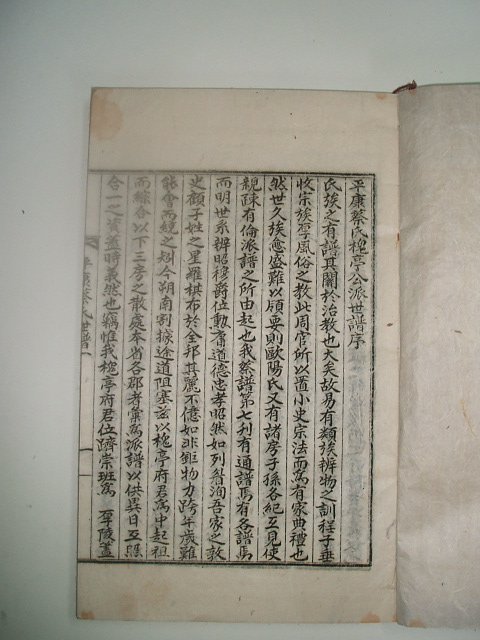 平康蔡氏槐亭公派世譜序
氏族之有譜其關於治教也大矣故易有類族辨物之訓程子垂
收宗族厚風俗之教此周官所以置小史宗法而爲有家典禮也
然世久族愈盛難以領要則歐陽氏又有諸房子孫各紀互見使
親疎有倫派譜之所由起也我蔡譜第七刊有通譜焉有各譜焉
而明世系辨昭穆爵位勳耆道德忠孝昭然如列眉洵吾家之敦
史顧子姓之星羅棋布於全邦其麗不億如非鉅物力跨年歲難
能會而統之矧今朔南割據途道阻塞茲以槐亭府君爲中起祖
而綜合以下三房之散處本省各郡者彙爲派譜以供異日互照
合一之資蓋時義然也竊惟我槐亭府君位隮崇班爲 至陵蓋
平康蔡氏世譜一